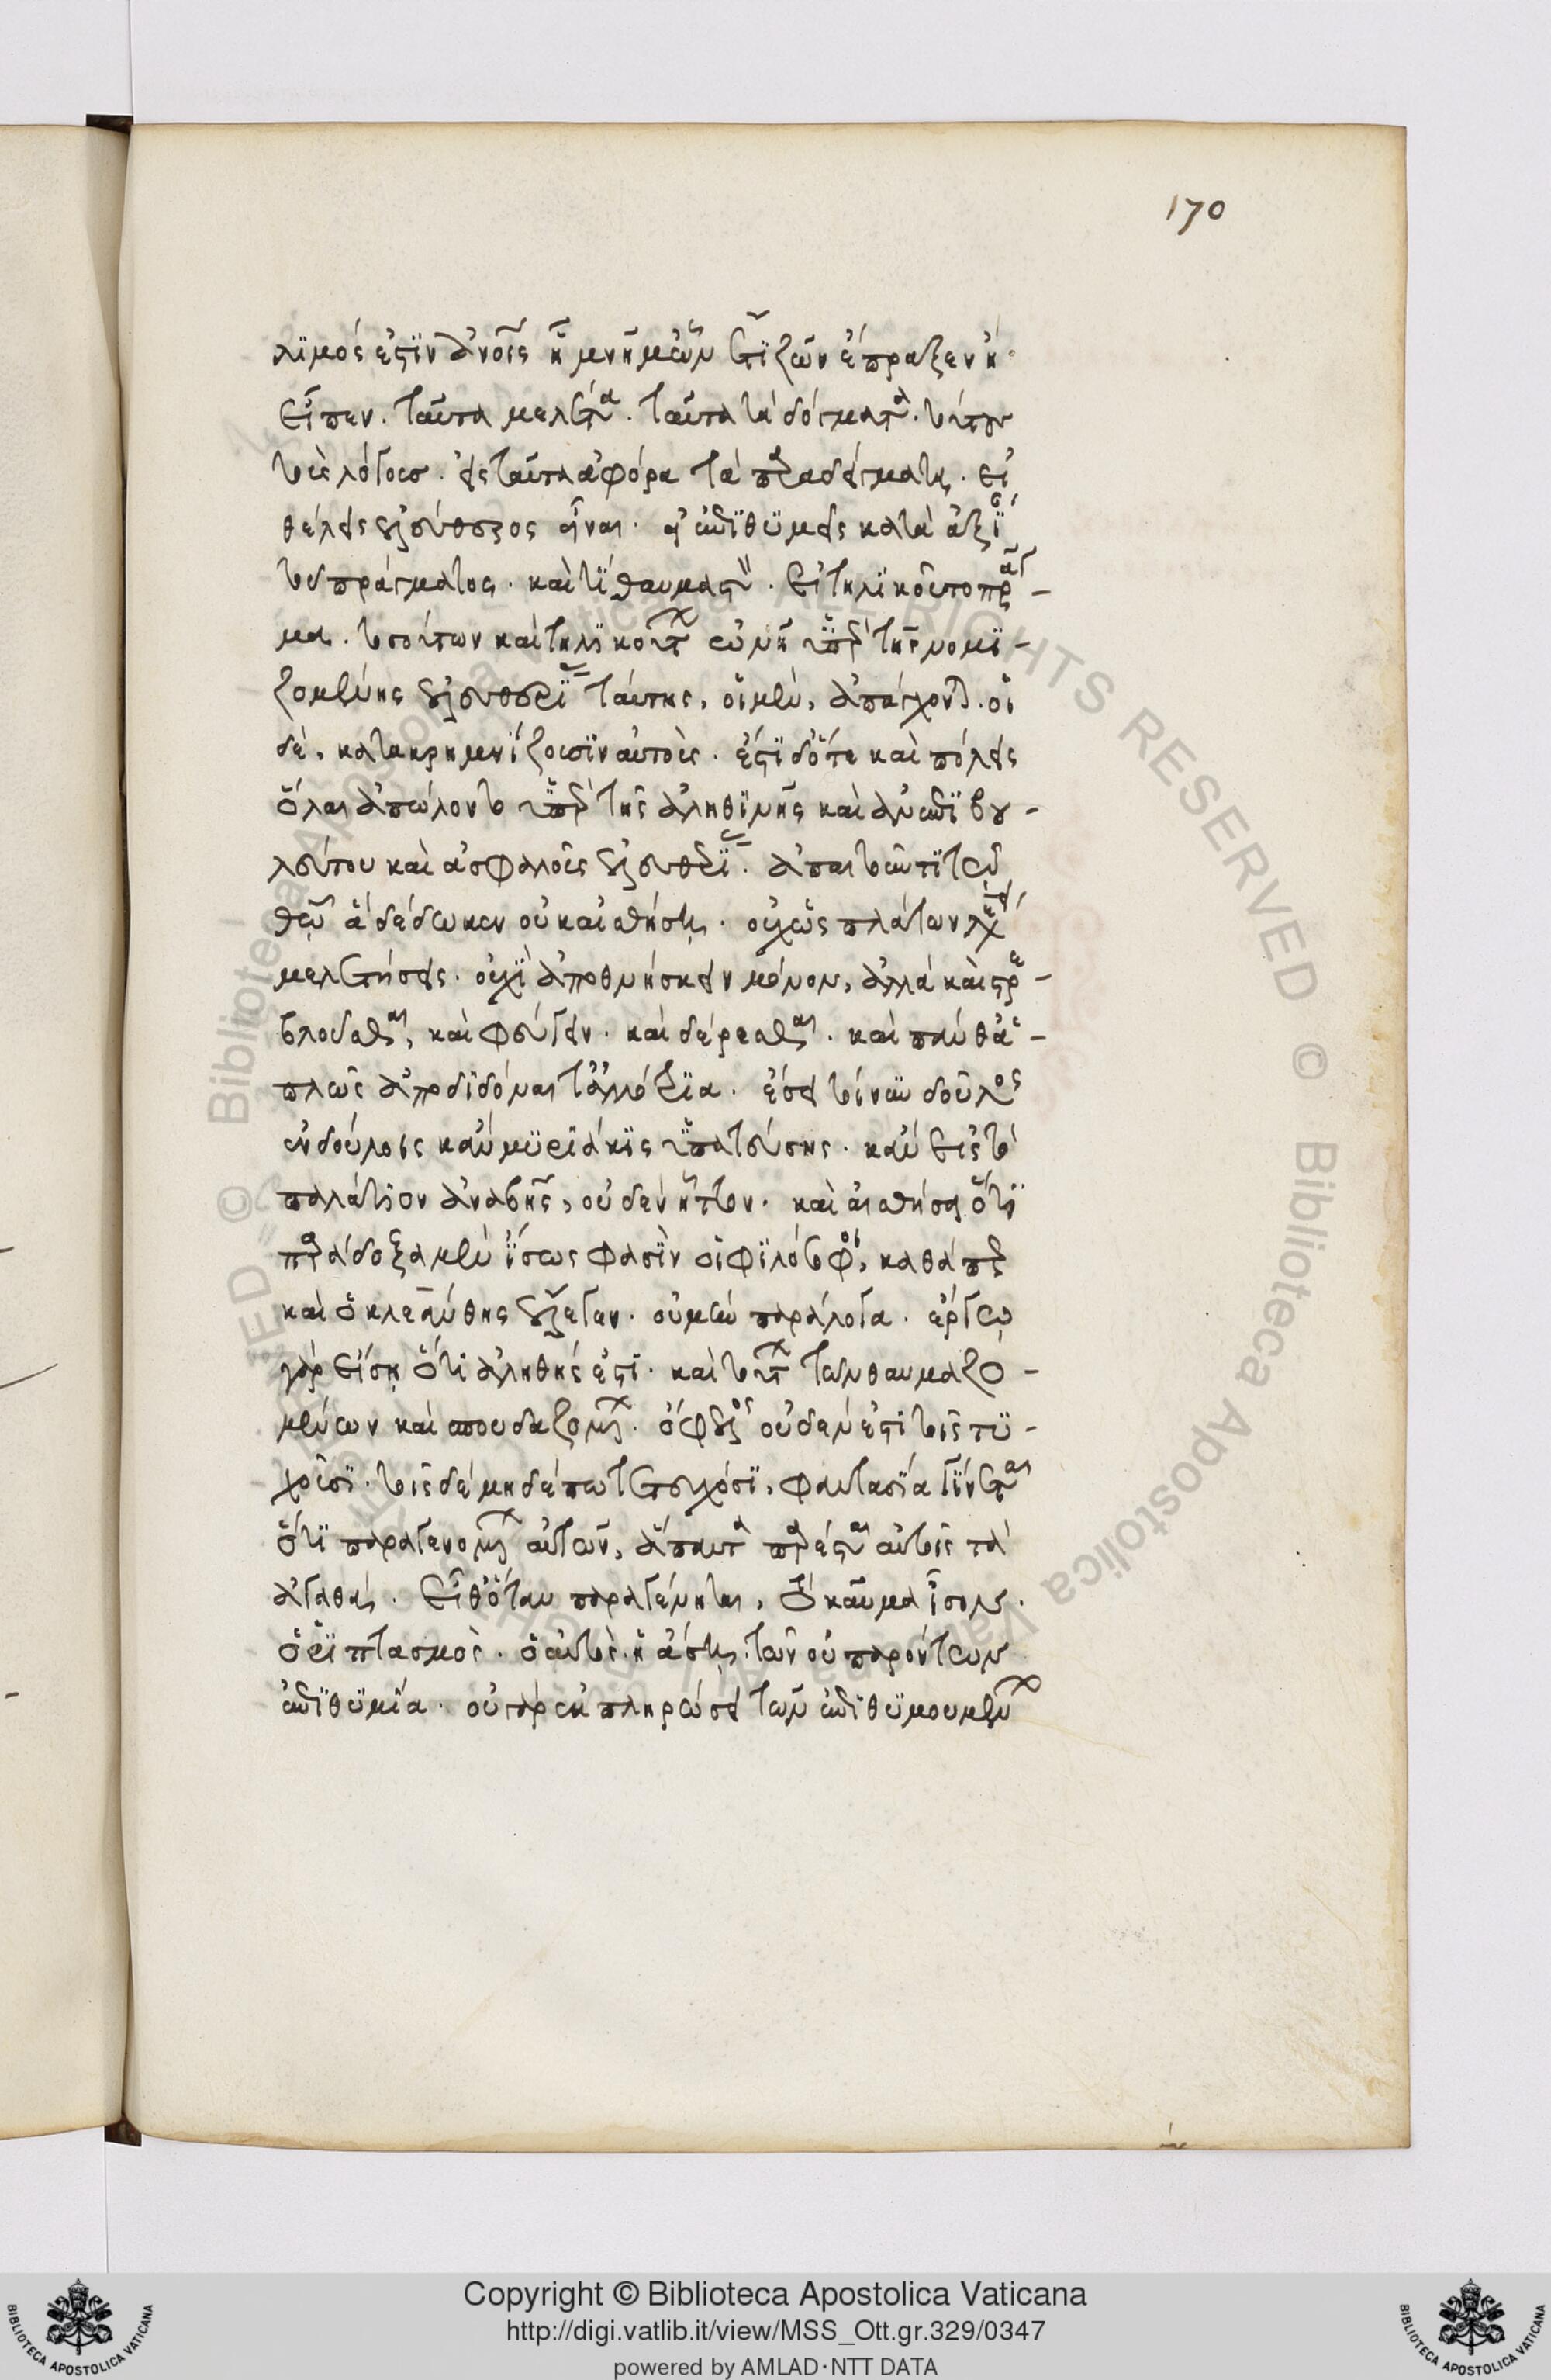 170
λϊμός ἐστϊν ἀνοις ἡ μνήμη ὧν ἔτϊ ζῶν ἔπραξεν ἢ
εἶπεν. ταῦτα μελέτα. ταῦτα τὰ δόγματα. τούτους
τοὺς λόγους. εἰς ταῦτα ἀφόρα τὰ παραδείγματα. εἰ
θέλεις ἐλεύθερος εἶναι. εἰ ἐπϊθϋμεῖς κατὰ ἀξϊ
τοῦ πράγματος. καὶ τϊ θαυμαστὸν. εἰ τηλϊκοῦτο πρᾶγ-
μα. τοσούτων καὶ τηλϊκούτων ὠνῇ ὑπὲρ τῆς νομϊ-
ζομένης ἐλευθερϊας ταύτης, οἱ μὲν, ἀπάγχονται. οἱ
δὲ, κατακρημνίζουσϊν αὑτοὺς. ἔστϊ δ' ὅτε καὶ πόλεις
ὅλαι ἀπώλοντο ὑπὲρ τῆς ἀληθϊνῆς καὶ ἀνεπϊβου-
λεύτου καὶ ἀσφαλοῦς ἐλευθερϊας. ἀπαιτοῦντϊ τῷ
θεῷ ἃ δέδωκεν οὐκ ἀισθήσῃ. οὐχ ὡς πλάτων λέγει
μελετήσεις. οὐχϊ ἀποθνήσκειν μόνον, ἀλλὰ καὶ στρε-
βλοῦσθαι, καὶ φεύγειν. καὶ δέρεσθαι. καὶ πάνθ' ἁ-
πλῶς ἀποδϊδόναι τἀλλότρϊα. ἔσει τοίνϋν δοῦλος
ἐν δούλοις κἂν μϋρϊάκϊς ὑπατεύσῃς. κἂν εἰς τὸ
παλάτϊον ἀναβῇς, οὐδὲν ἧττον. καὶ αἰσθήσῃ ὅτϊ
παράδοξα μὲν ἴσως φασϊν οἱ φϊλόσοφοι, καθάπερ
καὶ ὁ κλεάνθης ἔλεγεν. οὐ μὴν παράλογα. ἔργῳ
γὰρ εἴσῃ ὅτϊ ἀληθῆ ἐστϊ. καὶ τούτων τῶν θαυμαζο-
μένων καὶ σπουδαζομένων. ὄφελος οὐδέν ἐστϊ τοῖς τϋ-
χοῦσϊ. τοῖς δὲ μηδέπω τετευχόσϊ, φαντασϊα γϊνεται
ὅτϊ παραγενομένων αὐτῶν, ἅπαντα παρέσται αὐτοῖς τὰ
ἀγαθά. εἶθ' ὅταν παραγένηται, τὸ καῦμα ἴσον.
ὁ ρϊπτασμὸς. ὁ αὐτὸς. ἡ ἄση. τῶν οὐ παρόντων
ἐπϊθϋμϊα. οὐ γὰρ ἐκπληρώσει τῶν ἐπϊθϋμουμένων
Copyright © Biblioteca Apostolica Vaticana
http://digi.vatlib.it/view/MSS_Ott.gr.329/0347
powered by AMLAD·NTT DATA